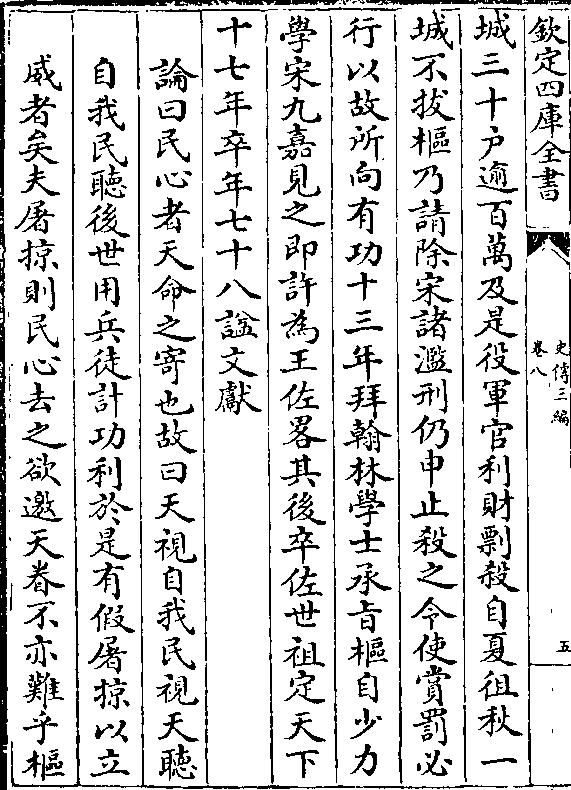 欽定四庫全書
史傳三編
卷八
五
城三十戶逾百萬及是役軍官利財剽殺自夏徂秋一
城不拔樞乃請除宋諸濫刑仍申止殺之令使賞罰必
行以故所向有功十三年拜翰林學士承旨樞自少力
學宋九嘉見之即許為王佐畧其後卒佐世祖定天下
十七年卒年七十八諡文獻
論曰民心者天命之寄也故曰天視自我民視天聽
自我民聽後世用兵徒計功利於是有假屠掠以立
威者矣夫屠掠則民心去之欲邀天眷不亦難乎樞